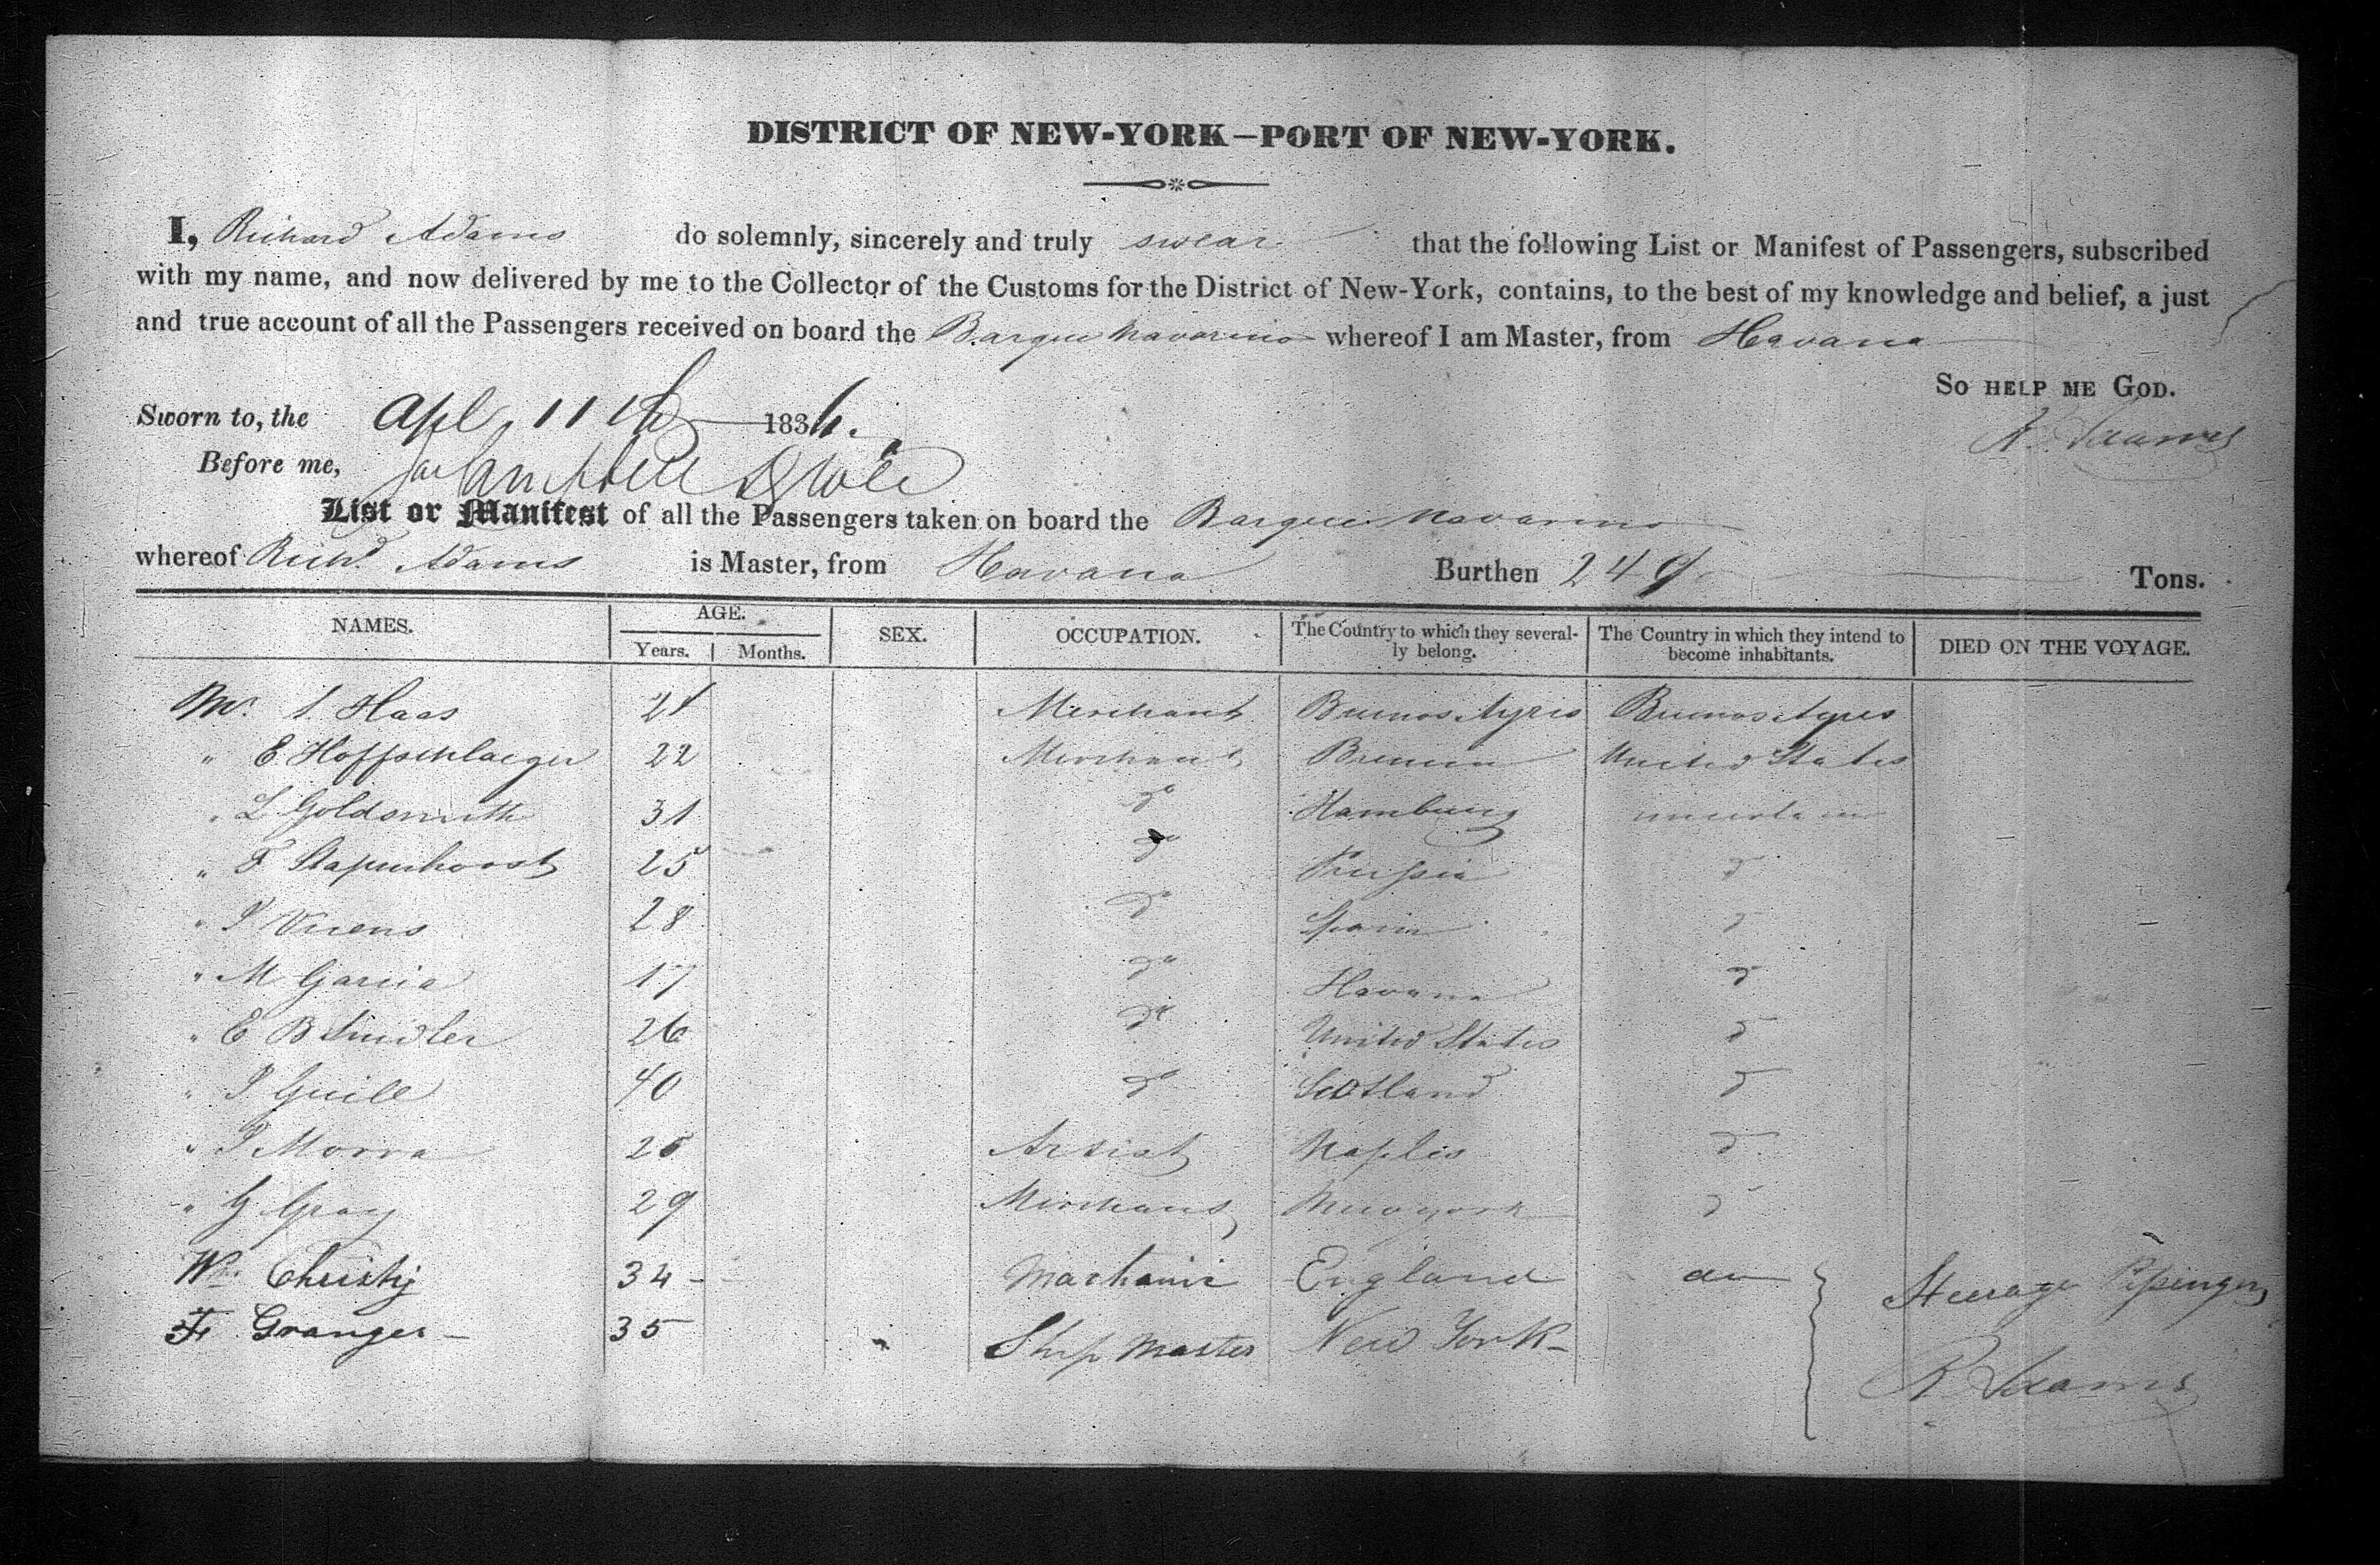 DISTRICT OF NEW-YORK—PORT OF NEW-YORK.
I, Richard Adams do solemnly, sincerely and truly swear that the following List or Manifest of Passengers, subscribed
with my name, and now delivered by me to the Collector of the Customs for the District of New-York, contains, to the best of my knowledge and belief, a just
and true account of all the Passengers received on board the Barque Navarino whereof I am Master, from Havana
So help me God.
Sworn to, the Apl 11th 1836. R. Adams
Before me,
List or Manifest of all the Passengers taken on board the Barque Navarino
whereof Richd Adams is Master, from Havana Burthen 249 Tons.
NAMES. AGE. SEX. OCCUPATION. The Country to which they several-ly belong. The Country in which they intend to become inhabitants. DIED ON THE VOYAGE.
Years. Months.
Mr. Haas 21 Merchant Buenos Ayres Buenos Ayres
" E Hoffschlaeger 22 Merchant Bremen United States
" L Goldsmith 31 do Hamburg uncertain
" F Stapenhorst 25 do do
" P Vicens 28 do Spain do
" M Garcia 17 do Havana do
" E B 26 do United States do
" P Guill 40 do Scotland do
" P Morra 25 Artist Naples do
" G Gray 29 Merchant New york do
Wm. Christy 34 - Machanic England do Steerage
F. Granger - 35 Ship Master New York -
R Adams